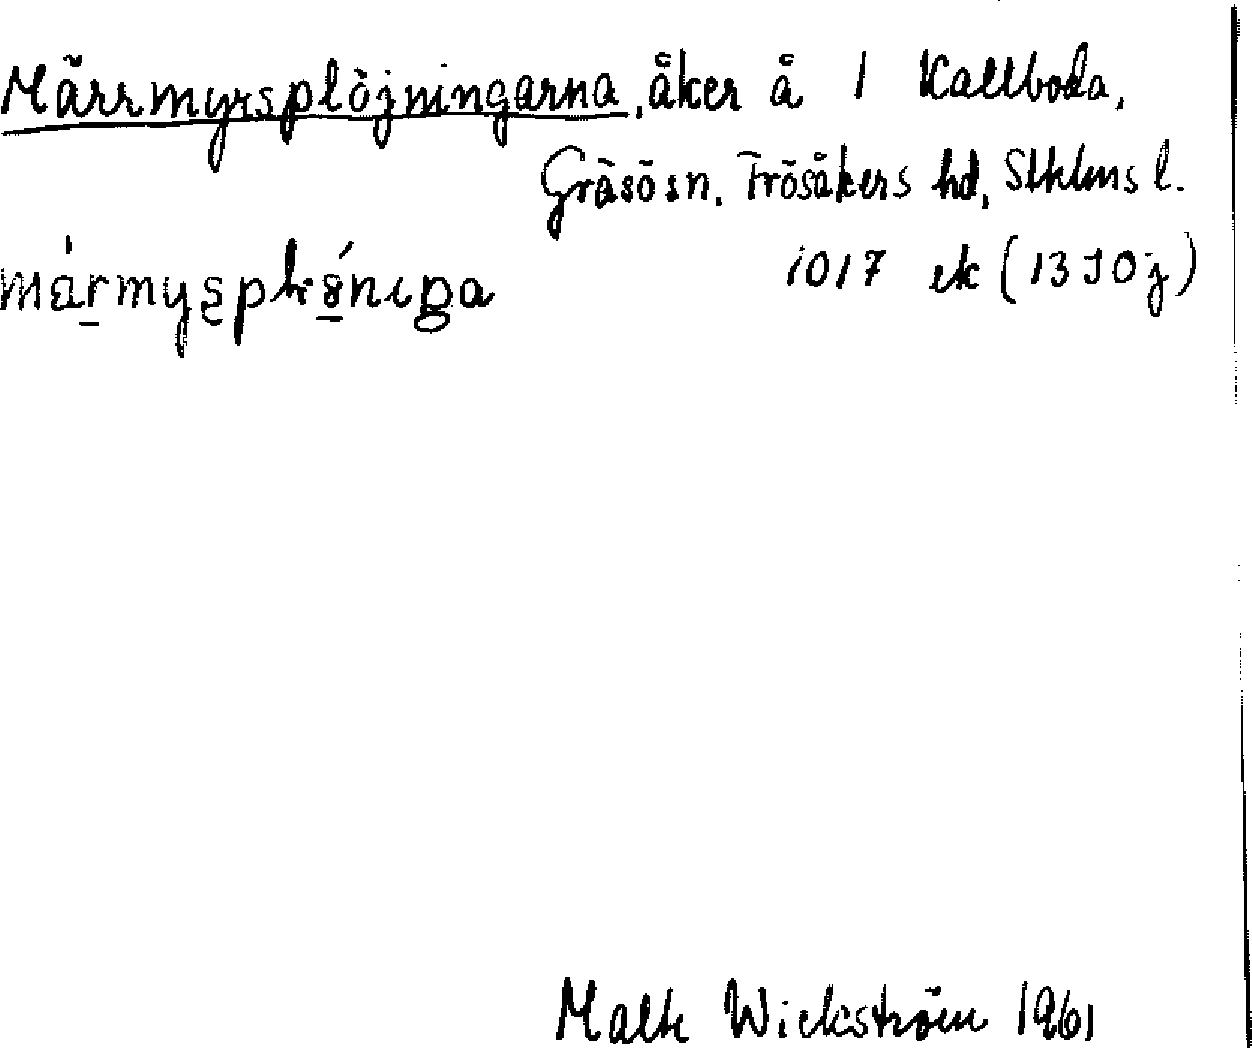 Märrmyrsplöjningarna, åker å 1 Kallboda,
Gräsö sn. Frösåkers hd, Sthlms l.
1017 ek (13 I 0 j)
Malte Wickström 1961